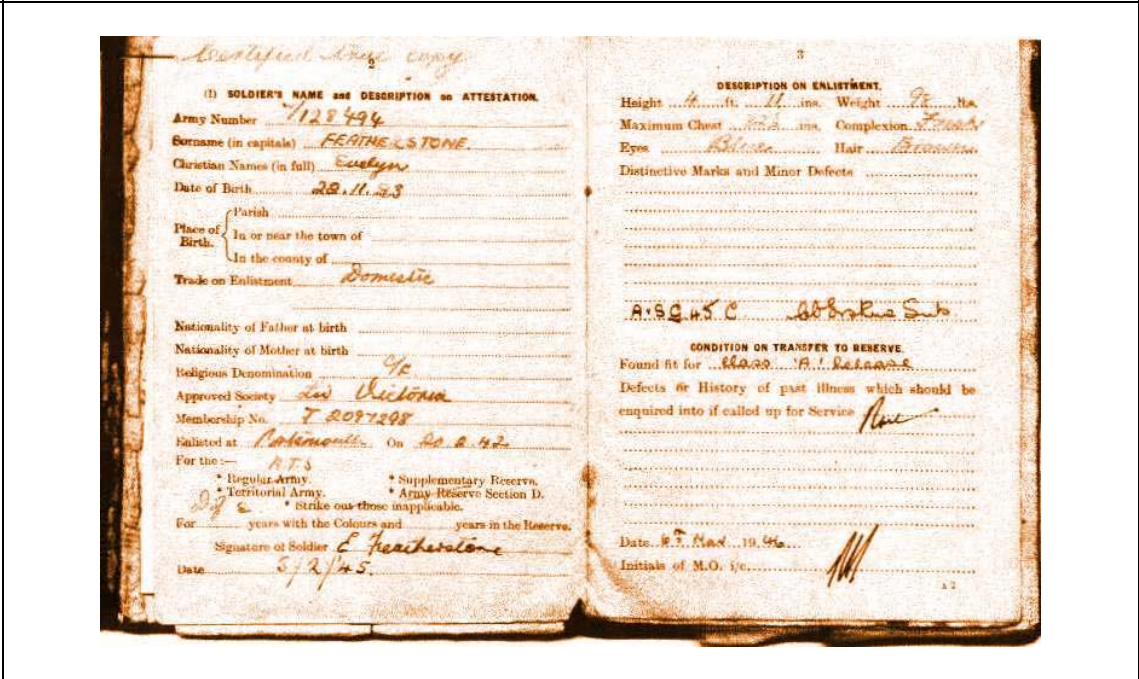 Certified true copy
2
(1) SOLDIER'S NAME and DESCRIPTION on ATTESTATION.
Army Number /128494
Surname (in capitals) FEATHERSTONE
Christian Names (in full) Evelyn
Date of Birth 28.11.23
Place of Birth.
Parish
In or near the town of
In the county of
Trade on Enlistment Domestic
Nationality of Father at birth
Nationality of Mother at birth
Religious Denomination C/E
Approved Society Victoria
Membership No. T 2097298
Enlisted at On 42
For the :— A.T.S
* Regular Army. * Supplementary Reserve.
* Territorial Army. * Army Reserve Section D.
* Strike out those inapplicable.
For years with the Colours and years in the Reserve.
Signature of Soldier E Featherstone
Date 5/2/45.
3
DESCRIPTION ON ENLISTMENT.
Height 4 ft. 11 ins. Weight 98 lbs.
Maximum Chest ins. Complexion Fresh
Eyes Blue Hair Brown
Distinctive Marks and Minor Defects
45 C Sub
CONDITION ON TRANSFER TO RESERVE.
Found fit for Class 'A' Release
Defects or History of past illness which should be
enquired into if called up for Service
Date Mar 1946
Initials of M.O. i/c.
A 2